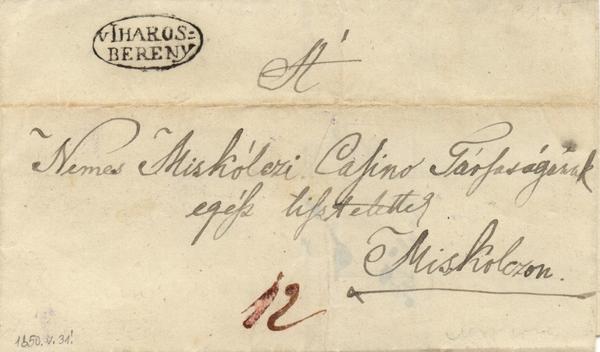 v. IHAROS-
BERENY
A'
Nemes Miskólczi Caſino Társaságának
egéſz tiſzteletteĺ
Miskolczon.
12
1850. V. 31!